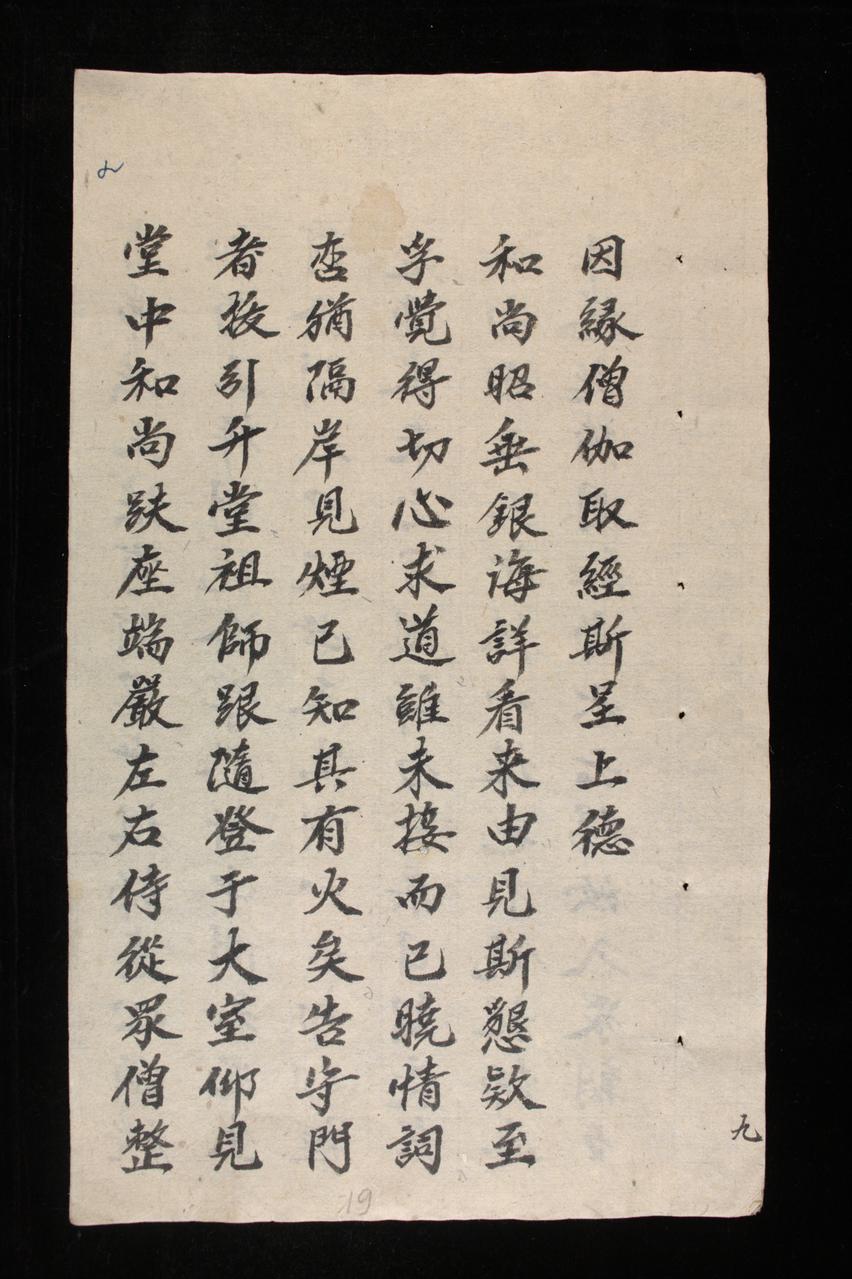 因縁僧伽取經斯呈上德
和尚昭垂銀海詳看来由見斯懇欵至
孚覺得切心求道雖未接而已曉情詞
峦猶隔岸見煙已知其有火矣告守門
者扳引升堂祖師跟隨登于大室仰見
堂中和尚趺座端嚴左右侍從眾僧整
九
19